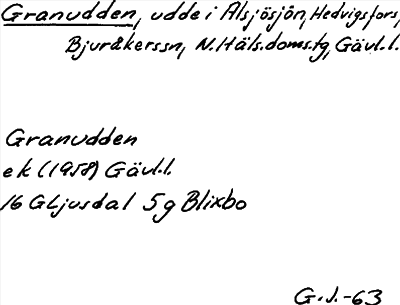 Granudden, udde i Alsjösjön, Hedvigsfors,
Bjuråkerssn, N.Häls.doms.tg, Gävl.l.
Granudden
ek (1958) Gävl.l.
16 G Ljusdal 5g Blixbo
G.J.-63